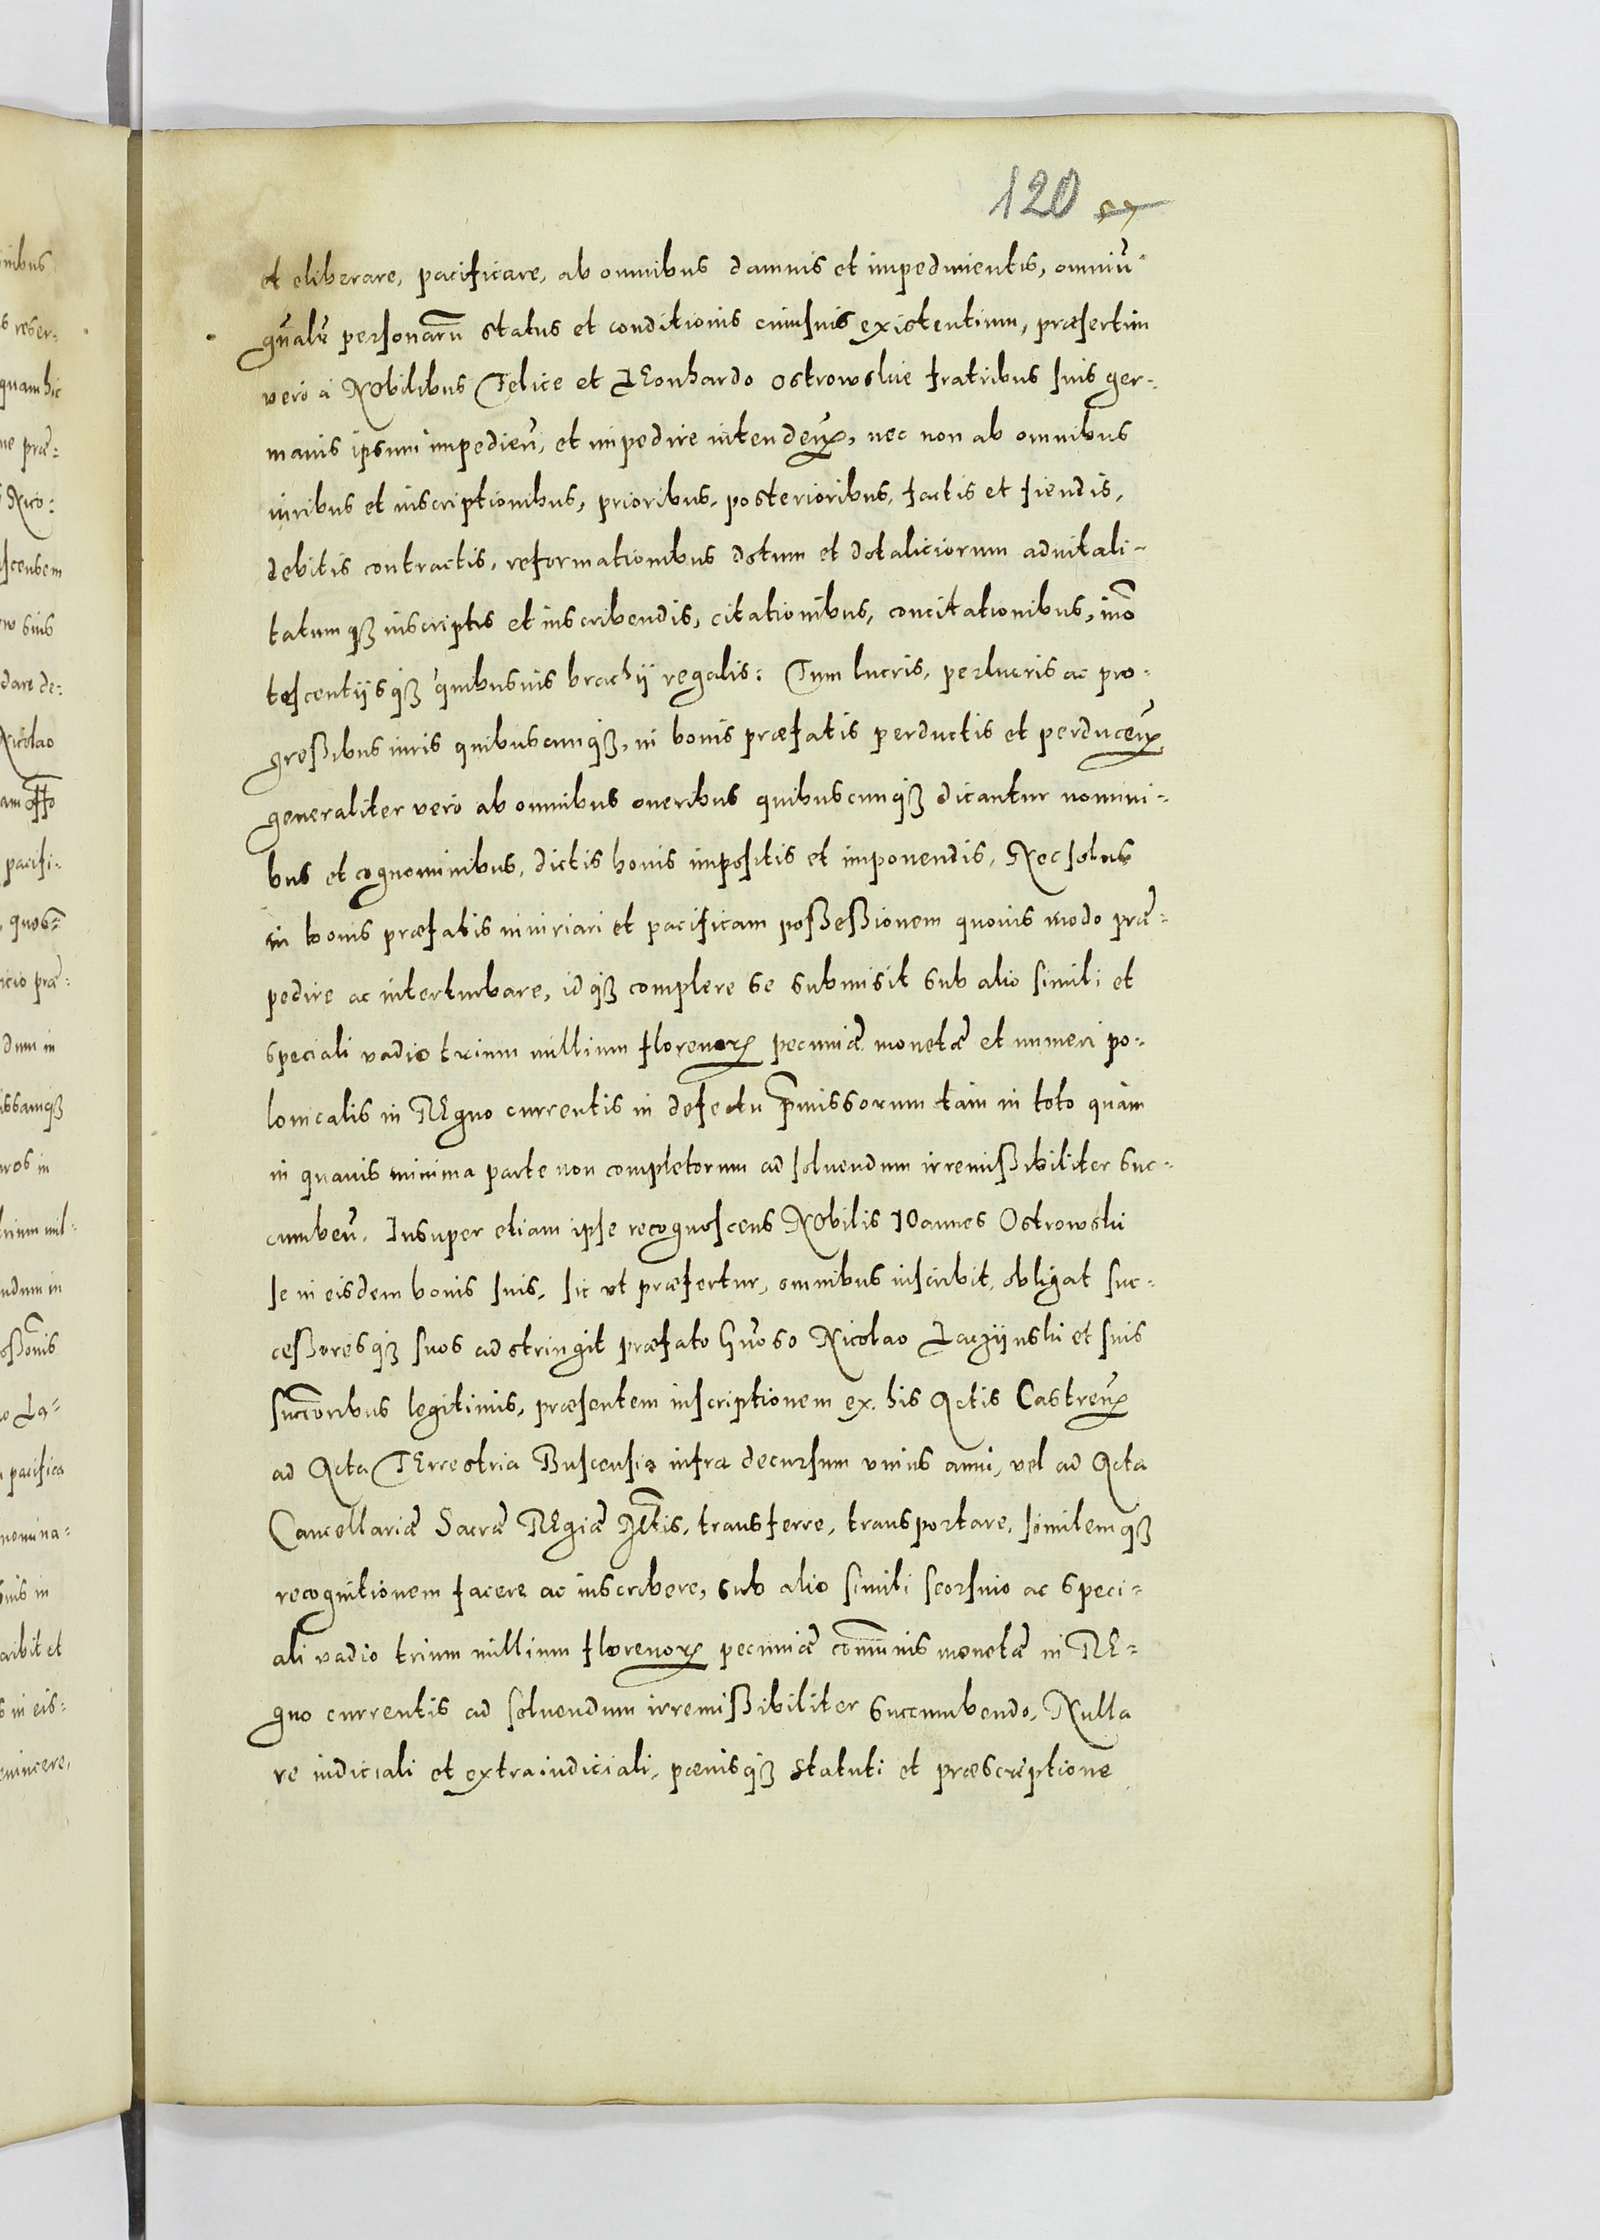 120 57
et eliberare, pacificare, ab omnibus damnis et impedimentis, omniū
gn̄aliū personarū status et conditionis cuiusuis existentium, præsertim
vero à Nobilibus Felice et LEonhardo Ostrowskie fratribus suis ger-
manis ipsum impedieñ, et impedire intendeñ, nec non ab omnibus
iuribus et inscriptionibus, prioribus, posterioribus, factis et fiendis,
debitis contractis, reformationibus dotum et dotaliciorum aduitali-
tatumqȝ inscriptis et inscribendis, citationibus, concitationibus, inno
tescentiysqȝ quibusuis brachÿ regalis: Tum lucris, perlucris ac pro-
greßibus iuris quibuscunqȝ, in bonis præfatis perductis et perduceñ
generaliter vero ab omnibus oneribus quibuscunqȝ dicantur nomini-
bus et cognominibus, dictis bonis impositis et imponendis, Nec solus
in bonis præfatis iniuriari et pacificam poßeßionem quouis modo præ-
pedire ac interturbare, idqȝ complere se submisit sub alio simili et
speciali vadio trium millium florenorꝝ pecuniæ monetæ et numeri po-
lonicalis in REgno currentis in defectu p̄missorum tam in toto quàm
in quauis minima parte non completorum ad soluendum irremißibiliter suc-
cumbeñ. Insuper etiam ipse recognoscens NObilis IOannes Ostrowski
se in eisdem bonis suis, sic ut præfertur, omnibus inscribit, obligat suc-
ceßoresqȝ suos adstringit præfato Gn̄oso Nicolao Laczÿnski et suis
succ̄oribus legitimis, præsentem inscriptionem ex his Actis Castreñ
ad Acta TErrestria Buscensia infra decursum vnius anni, vel ad Acta
Cancellariæ Sacræ REgiæ Mt̄tis, transferre, transportare, similemqȝ
recognitionem facere ac inscribere, sub alio simili seorsiuo ac speci-
ali vadio trium millium florenorꝝ pecuniæ com̄unis monetæ in RE-
gno currentis ad soluendum irremißibiliter succumbendo, Nulla
re iudiciali et extraiudiciali, pænisqȝ statuti et præscriptione